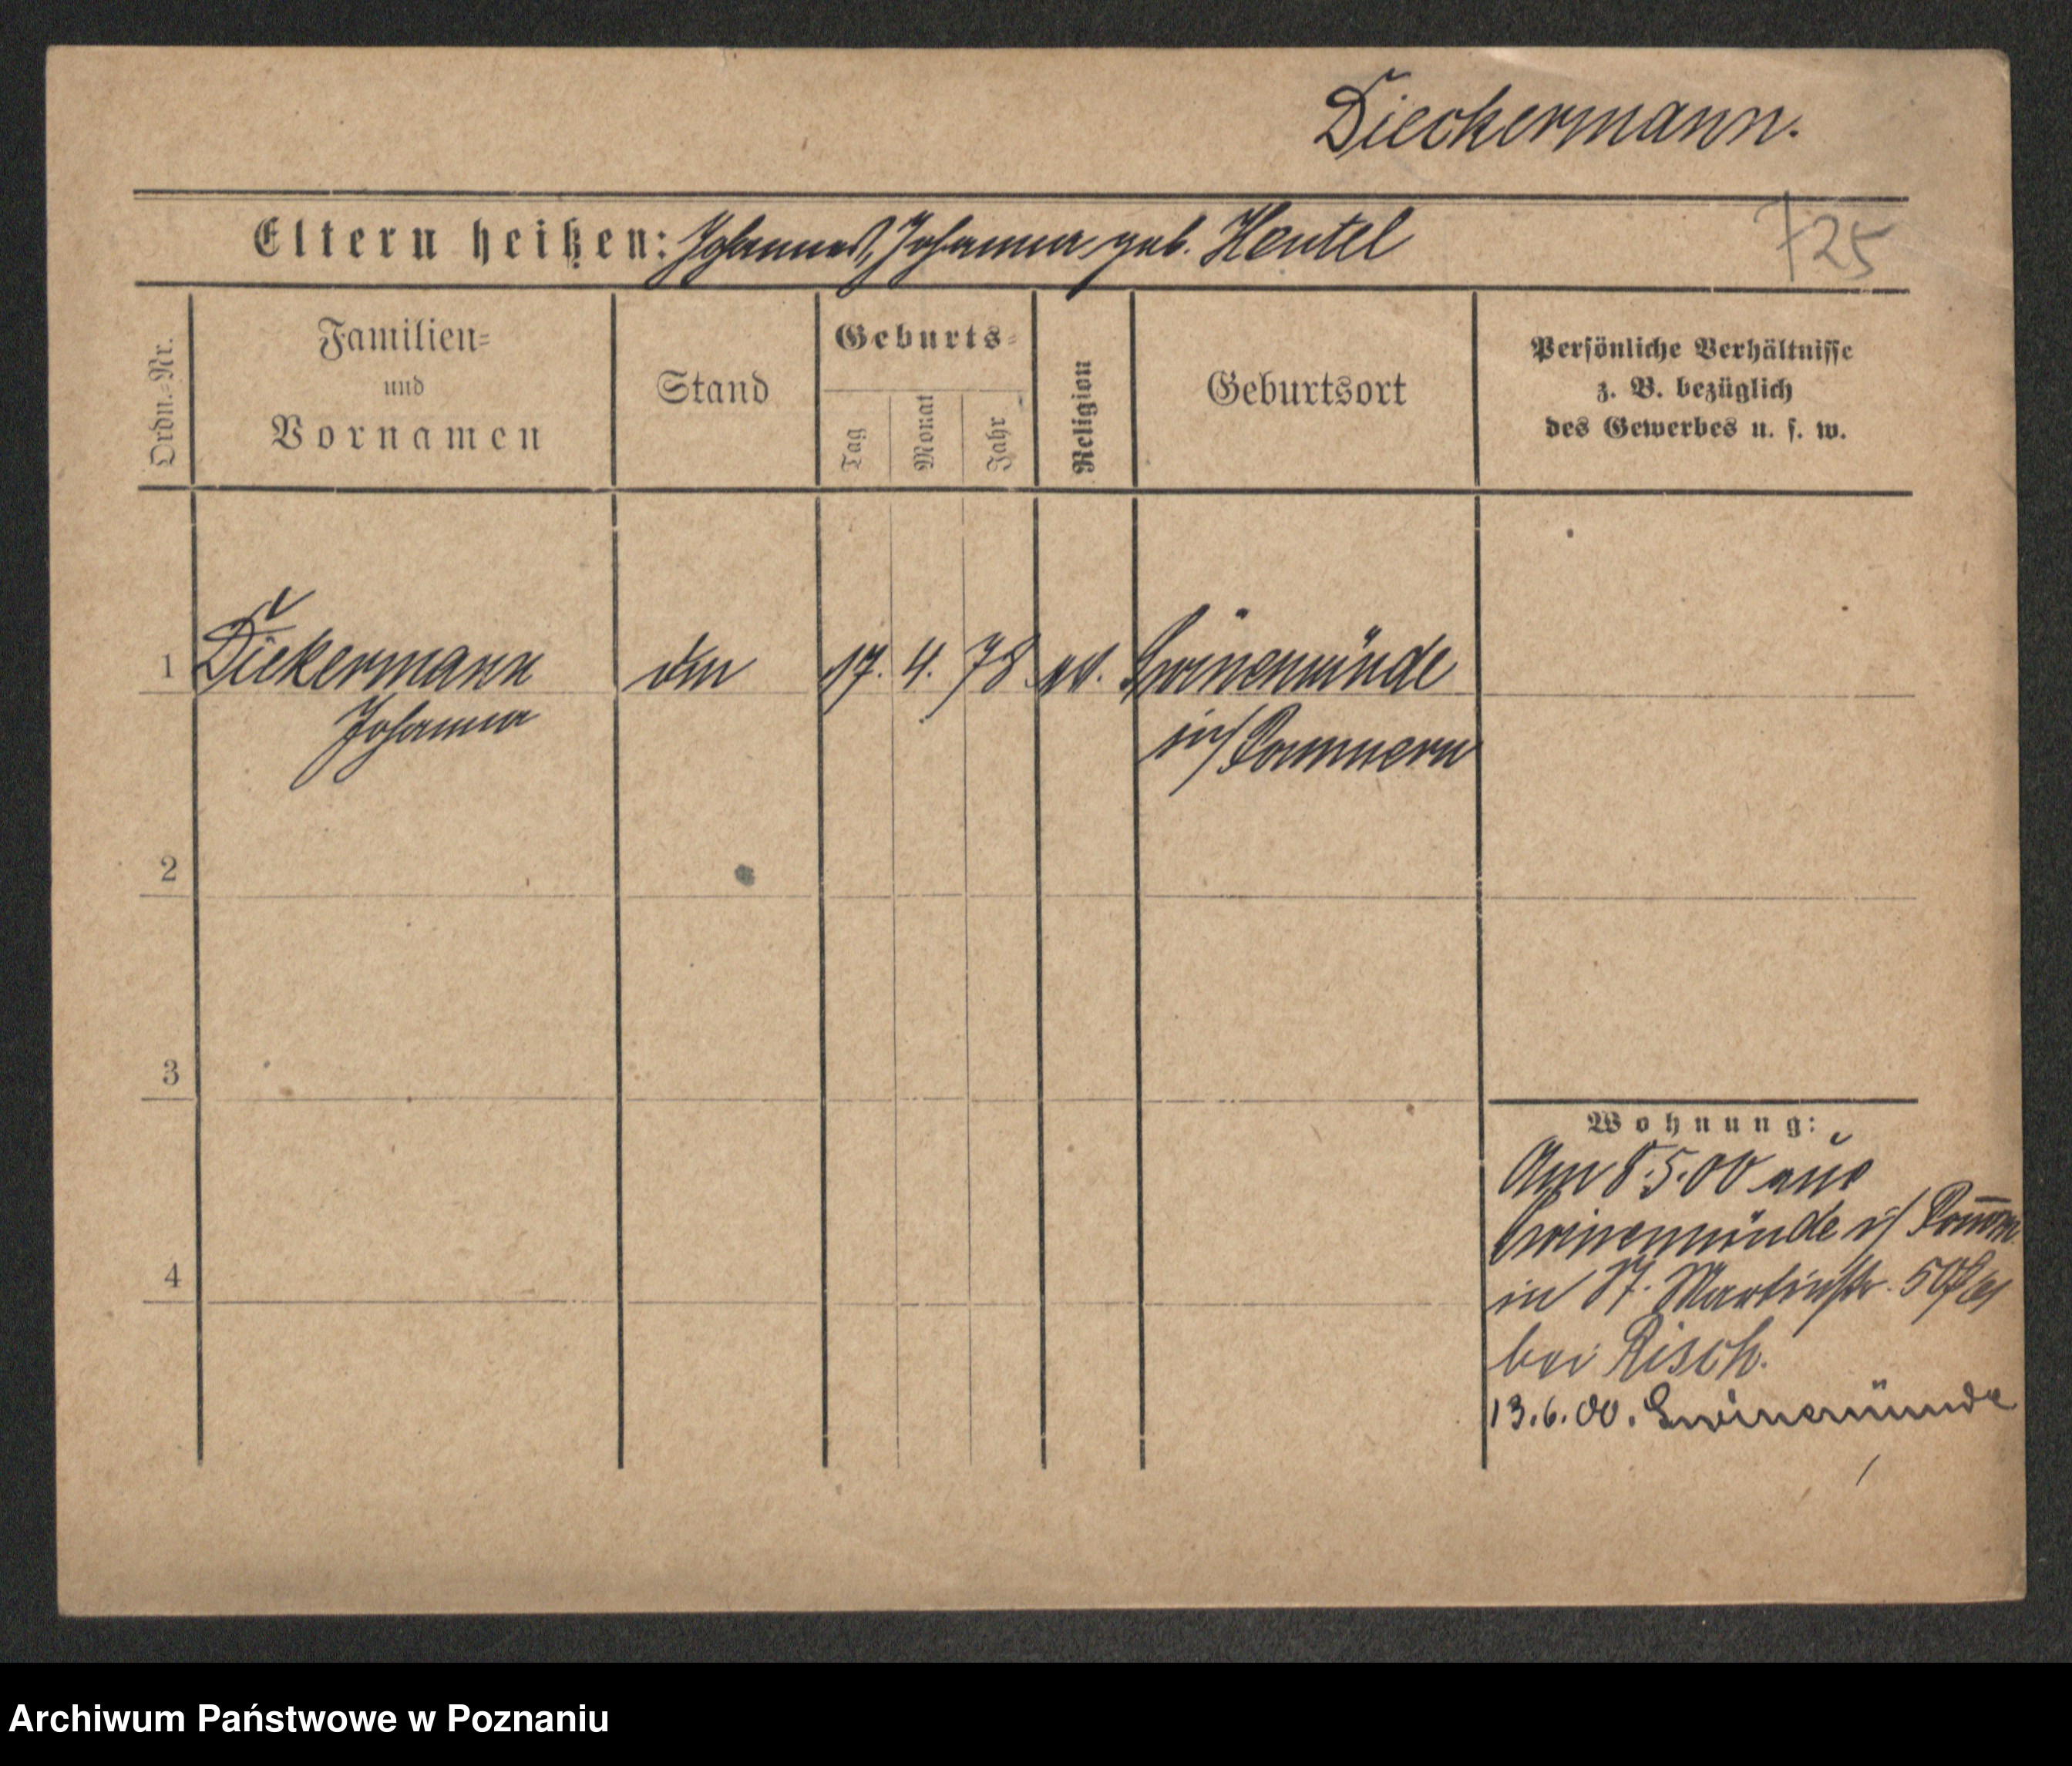 Dieckermann.
Eltern heißen: Johannes, Johanna geb. Hentel
725
Ordn.-Nr.
Familien-
und
Vornamen
Stand
Geburts-
Tag
Monat
Jahr
Religion
Geburtsort
Persönliche Verhältnisse
z. B. bezüglich
des Gewerbes u. s. w.
1 Diekermann 17. 4. 78. Swinemünde
Johanna i/ Pommern
2
3
4
Wohnung:
Am 8.5.00 aus
Swinemünde i/ Pomm.
in St. Martinstr. 50
bei Risch.
13.6.00. Swinemünde
Archiwum Państwowe w Poznaniu